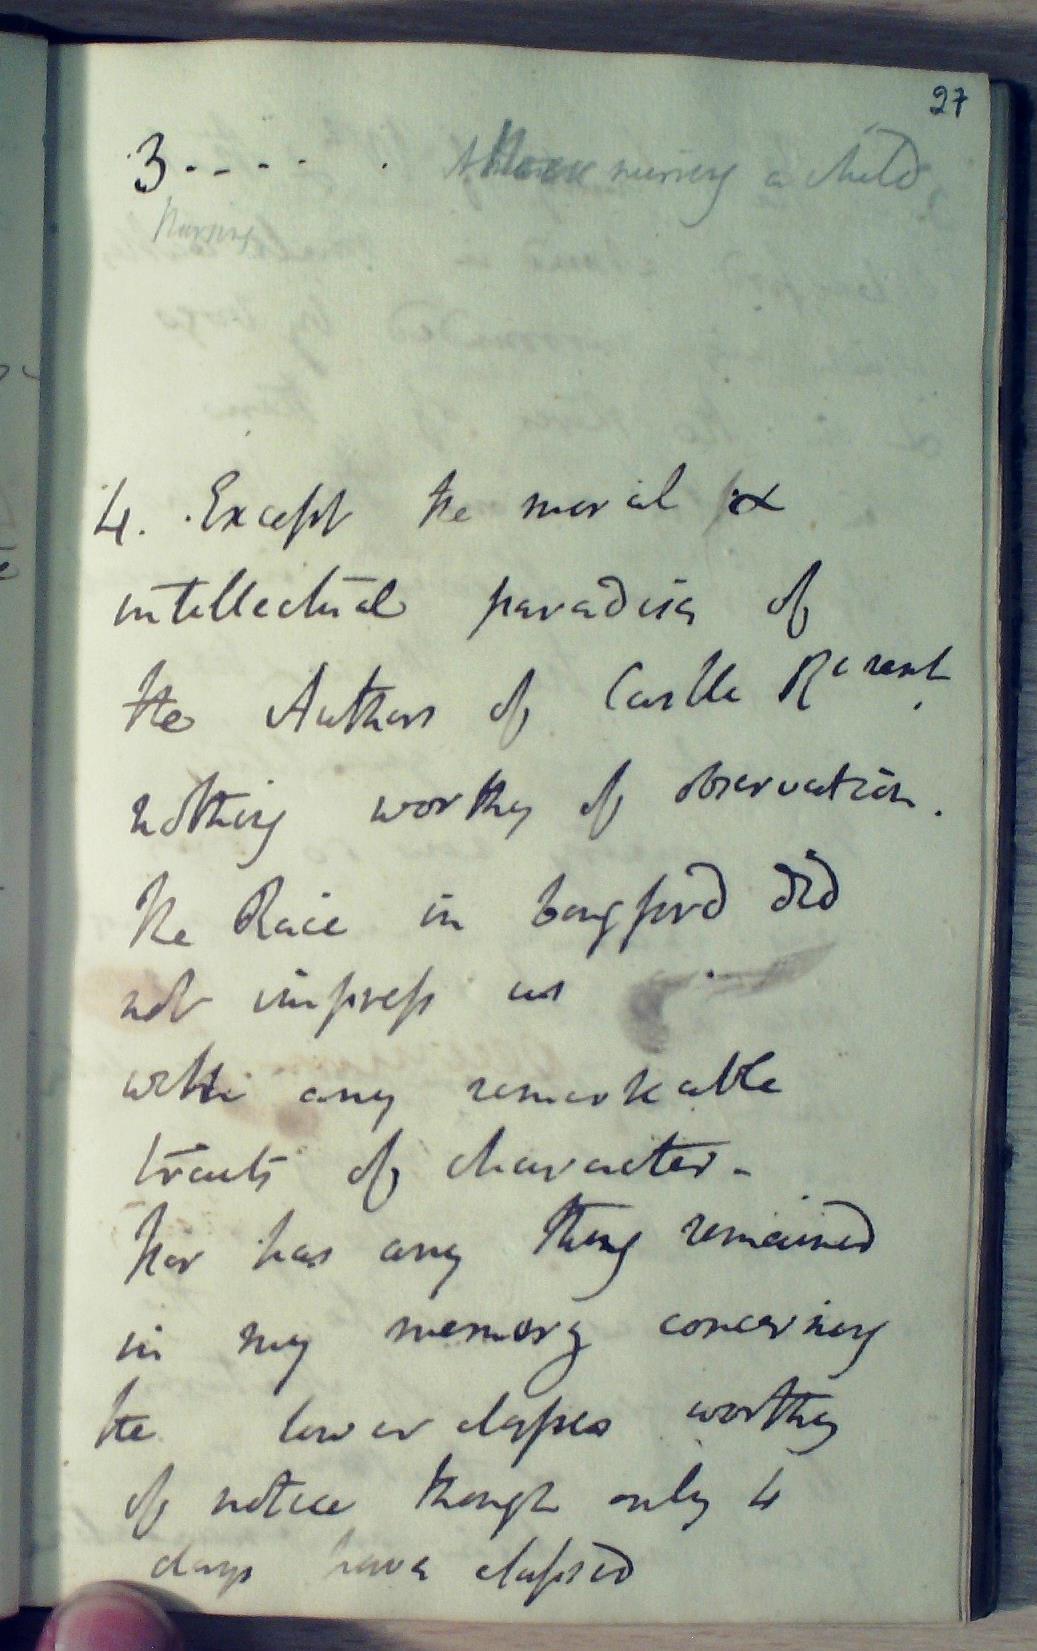 27
3---- . nursing a child
Nursing
4. Except the moral &
intellectual paradise of
the Authors of Castle Racrent
nothing worthy of observation.
The Race in Longford did
not impress us
with any remarkable
traits of character -
Nor has any thing remained
in my memory concerning
the lower classes worthy
of notice though only 4
days have elapsed